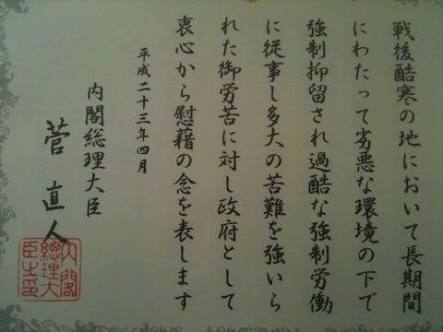 戦後酷寒の地において長期間
にわたって劣悪な環境の下で
強制抑留され過酷な強制労働
に従事し多大の苦難を強いら
れた御労苦に対し政府として
衷心から慰藉の念を表します
平成二十三年四月
内閣総理大臣
菅直人
内閣
總理大
臣之印